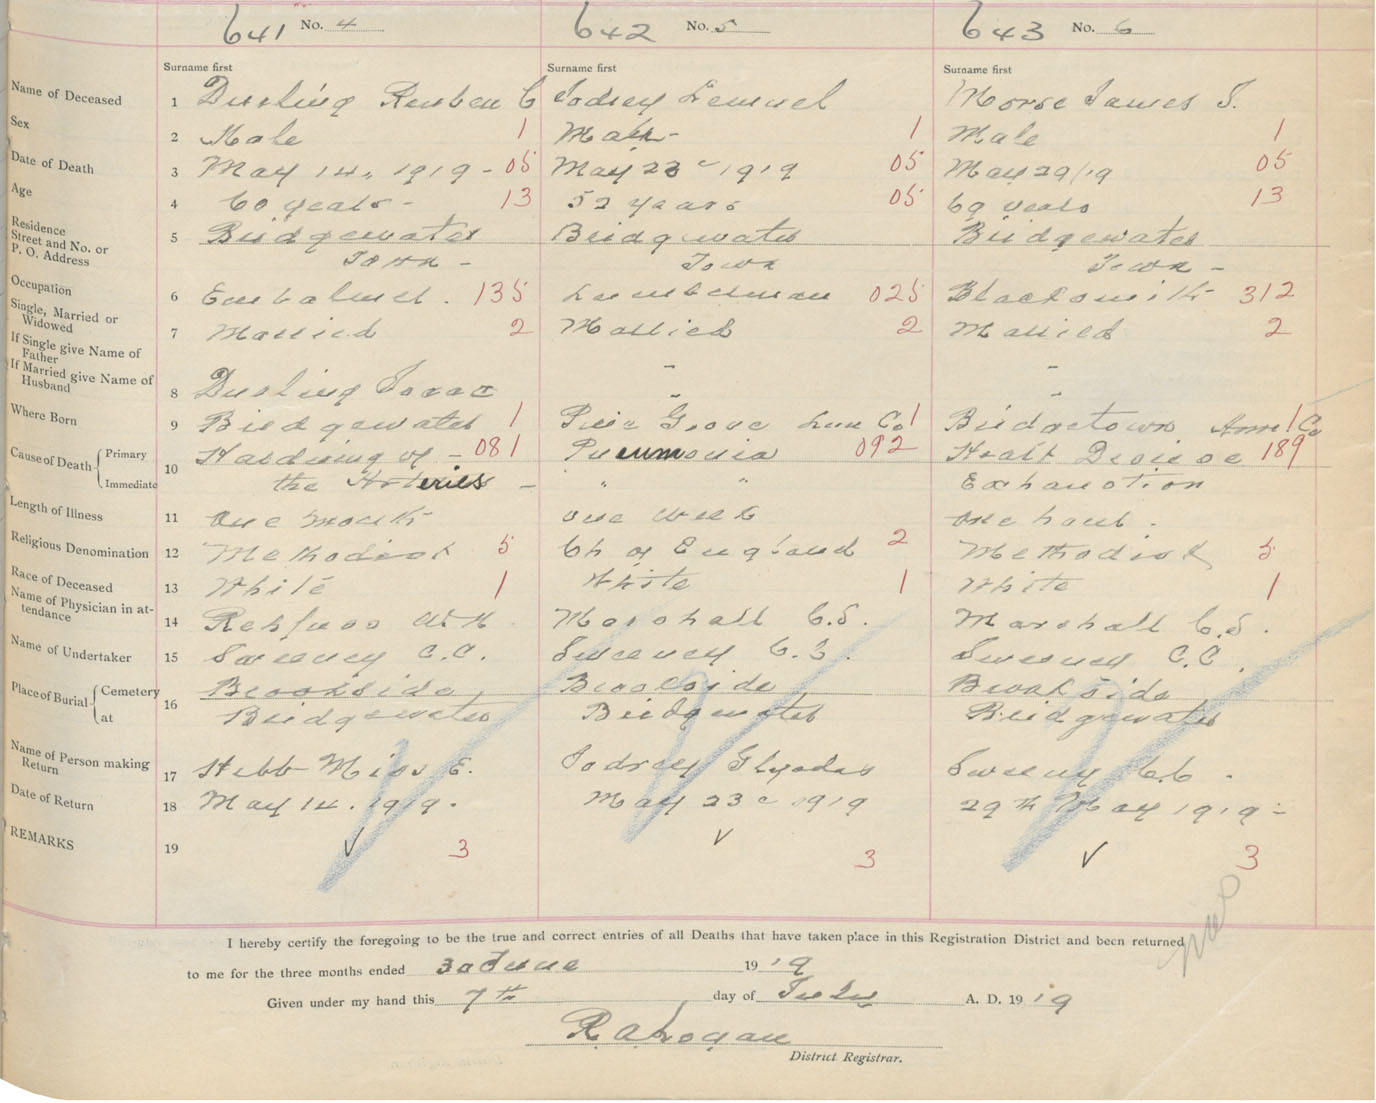 641 No. 4 642 No. 5 643 No. 6
Surname first Surname first Surname first
Name of Deceased 1 Durling Reuben C Jodrey Lemuel Morse James S.
Sex 2 Male 1 Male - 1 Male 1
Date of Death 3 May 14, 1919 - 05 May 23 1919 05 May 29/19 05
Age 4 60 years - 13 52 years 05 69 years 13
Residence
Street and No. or
P. O. Address 5 Bridgewater Bridgewater Bridgewater
Town - Town Town -
Occupation 6 Embalmer. 135 Lumberman 025 Blacksmith 312
Single, Married or
Widowed 7 Married 2 Married 2 Married 2
If Single give Name of
Father - -
If Married give Name of
Husband 8 Durling Isaac " "
Where Born 9 Bridgewater 1 Pine Grove Lun Co 1 Bridgetown Anna Co 1
Cause of Death { Primary 10 Hardning of - 081 Pneumonia 092 Heart Disease 189
Immediate the Arteries - " " Exhaustion
Length of Illness 11 One month one week one hour.
Religious Denomination 12 Methodist 5 Ch of England 2 Methodist 5
Race of Deceased 13 White 1 White 1 White 1
Name of Physician in at-
tendance 14 Rehfuss W.N. Marshall C.S. Marshall C.S.
Name of Undertaker 15 Sweeney C.C. Sweeney C.C. Sweeney C.C.
Place of Burial { Cemetery 16 Brookside, Brookside Brookside
at Bridgewater Bridgewater Bridgewater
Name of Person making
Return 17 Hebb Miss E. Jodrey Sweeny C.C.
Date of Return 18 May 14. 1919. May 23 1919 29th May 1919 -
REMARKS 19 ✓ 3 ✓ 3 ✓ 3
I hereby certify the foregoing to be the true and correct entries of all Deaths that have taken place in this Registration District and been returned
to me for the three months ended 30 June 1919
Given under my hand this 7th day of July A. D. 1919
R. A. Logan
District Registrar.